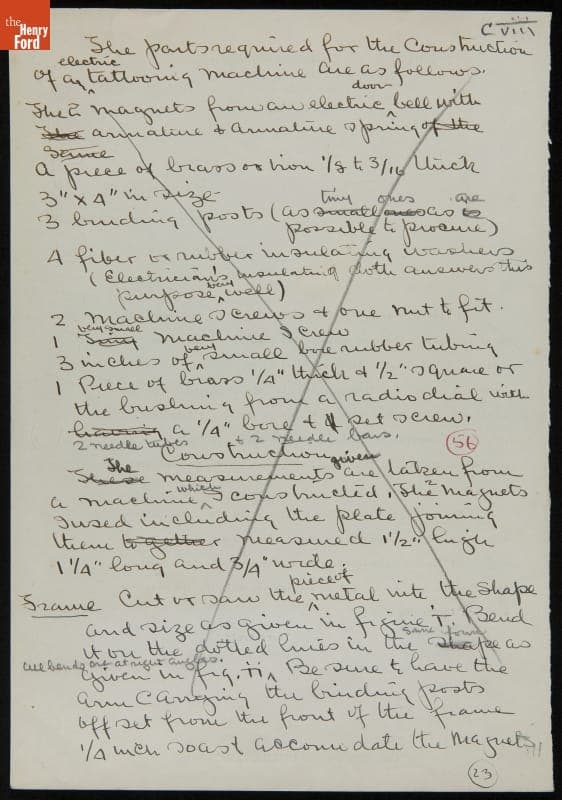 the
Henry
Ford
C VIII
The parts required for the Construction
electric
of an tattooing machine are as follows.
door
The 2 magnets from an electric bell with
The armature & armature spring of the
same
A piece of brass or iron 1/8 to 3/16 thick
3" x 4" in size
tiny ones are
3 binding posts (as small ones as is
possible to procure)
4 fiber or rubber insulating washers
(Electrician's insulating cloth answers this
very
purpose well)
2 Machine screws & one nut to fit.
very small
1 machine screw
very
3 inches of small bore rubber tubing
1 Piece of brass 1/4" thick & 1/2" square or
the bushing from a radio dial with
having a 1/4" bore & set screw.
2 needle tubes + 2 needle bars.
Construction
56
The given
These measurements are taken from
which
a machine I constructed. The 2 magnets
I used including the plate joining
them together measured 1 1/2" high
1 1/4" long and 3/4" wide.
piece of
Frame Cut or saw the metal into the shape
and size as given in figure I. Bend
same form
it on the dotted lines in the shape as
all bends are at right angles.
given in fig. II. Be sure to have the
arm carrying the binding posts
off set from the front of the frame
1/4 inch so as to accomodate the magnets
23